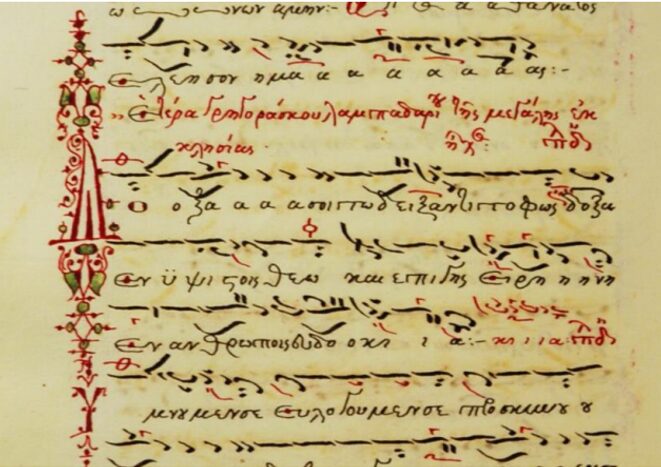 ωνων αμην:- α α θανατος
Ελεησον ημα α α α α α α ας:-
Ετέρα Γρηγοράσκου λαμπαδαρίου της μεγάλης εκ
κλησίας
ο οξα α α ασοι τω δειξαντι το φως δοξα
Εν ϋψιςοις θεω και επι γης Ειρη η νη
Εν ανθρωποις ευδο ο κι ι α:- κι ι ια
μνουμεν σε Ευλογουμεν σε